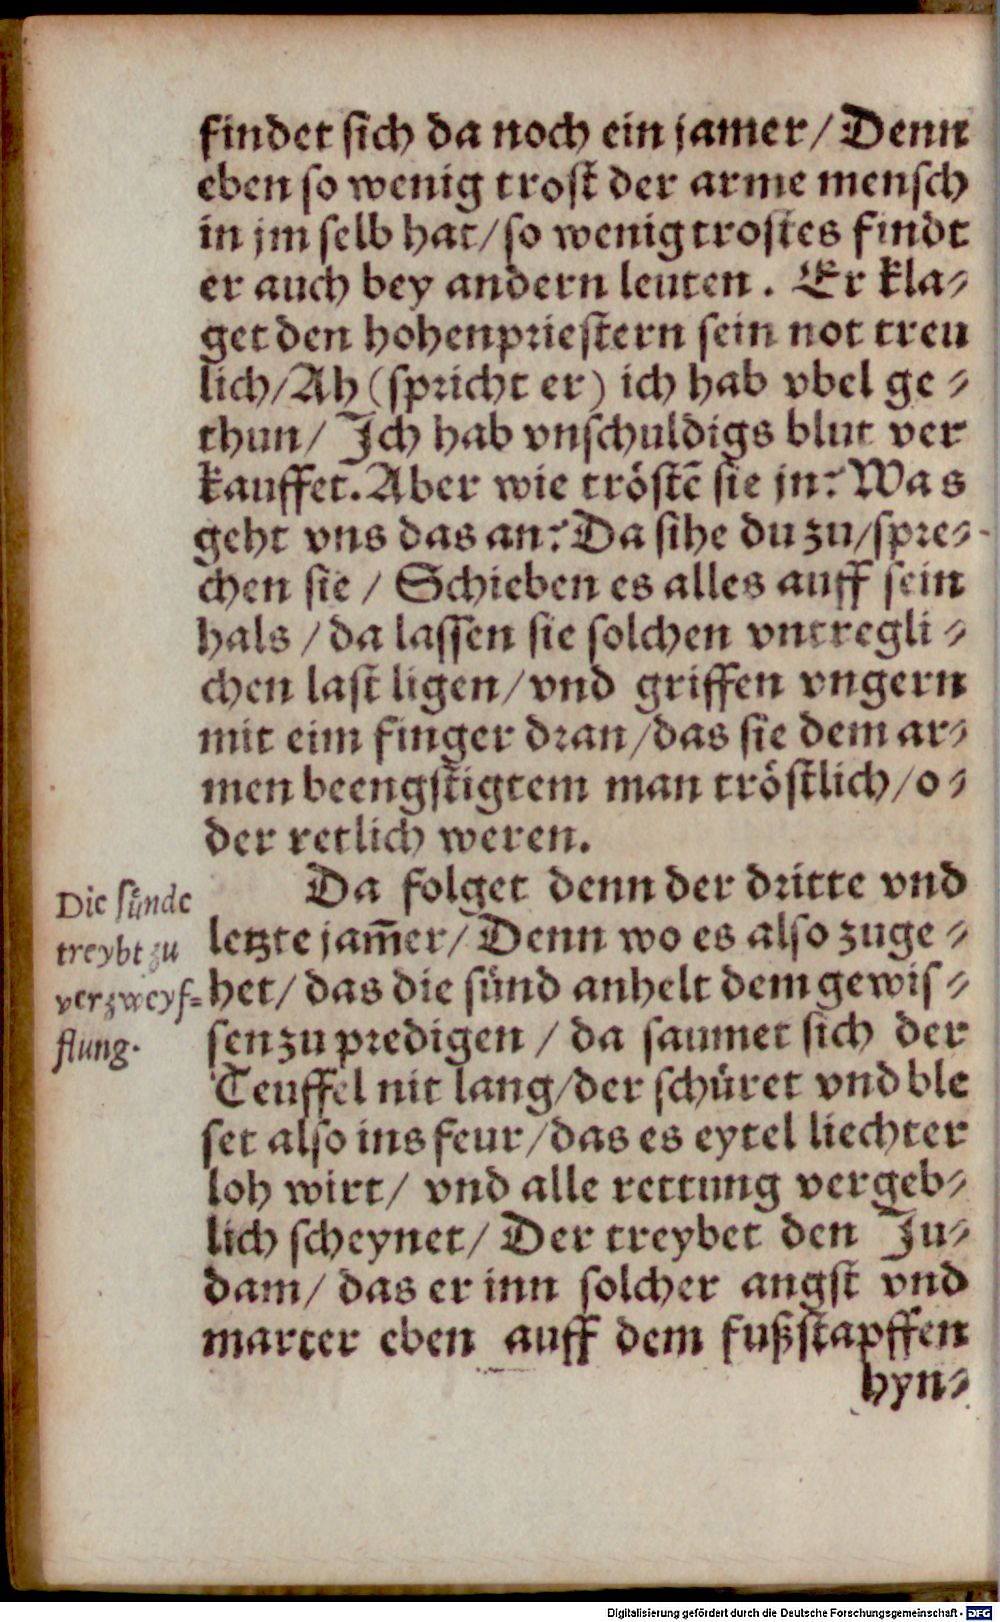 findet sich da noch ein jamer/ Denn
eben so wenig trost der arme mensch
in jm selb hat/ so wenig trostes findt
er auch bey andern leuten. Er kla⸗
get den hohenpriestern sein not treu
lich/ Ah (spricht er) ich hab vbel ge⸗
thun/ Ich hab vnschuldigs blut ver
kauffet. Aber wie tröstē sie jn? Was
geht vns das an? Da sihe du zu/ spre⸗
chen sie / Schieben es alles auff sein
hals / da lassen sie solchen vntregli⸗
chen last ligen/ vnd griffen vngern
mit eim finger dran/ das sie dem ar⸗
men beengstigtem man tröstlich/ o⸗
der retlich weren.
Da folget denn der dritte vnd
letzte jam̄er/ Denn wo es also zuge⸗
het/ das die sünd anhelt dem gewis⸗
sen zu predigen / da saumet sich der
Teuffel nit lang/ der schüret vnd ble
set also ins feur/ das es eytel liechter
loh wirt/ vnd alle rettung vergeb⸗
lich scheynet/ Der treybet den Ju⸗
dam/ das er inn solcher angst vnd
marter eben auff dem fußstapffen
hyn⸗
Die sünde
treybt zu
verzweyf⸗
flung.
Digitalisierung gefördert durch die Deutsche Forschungsgemeinschaft - DFG